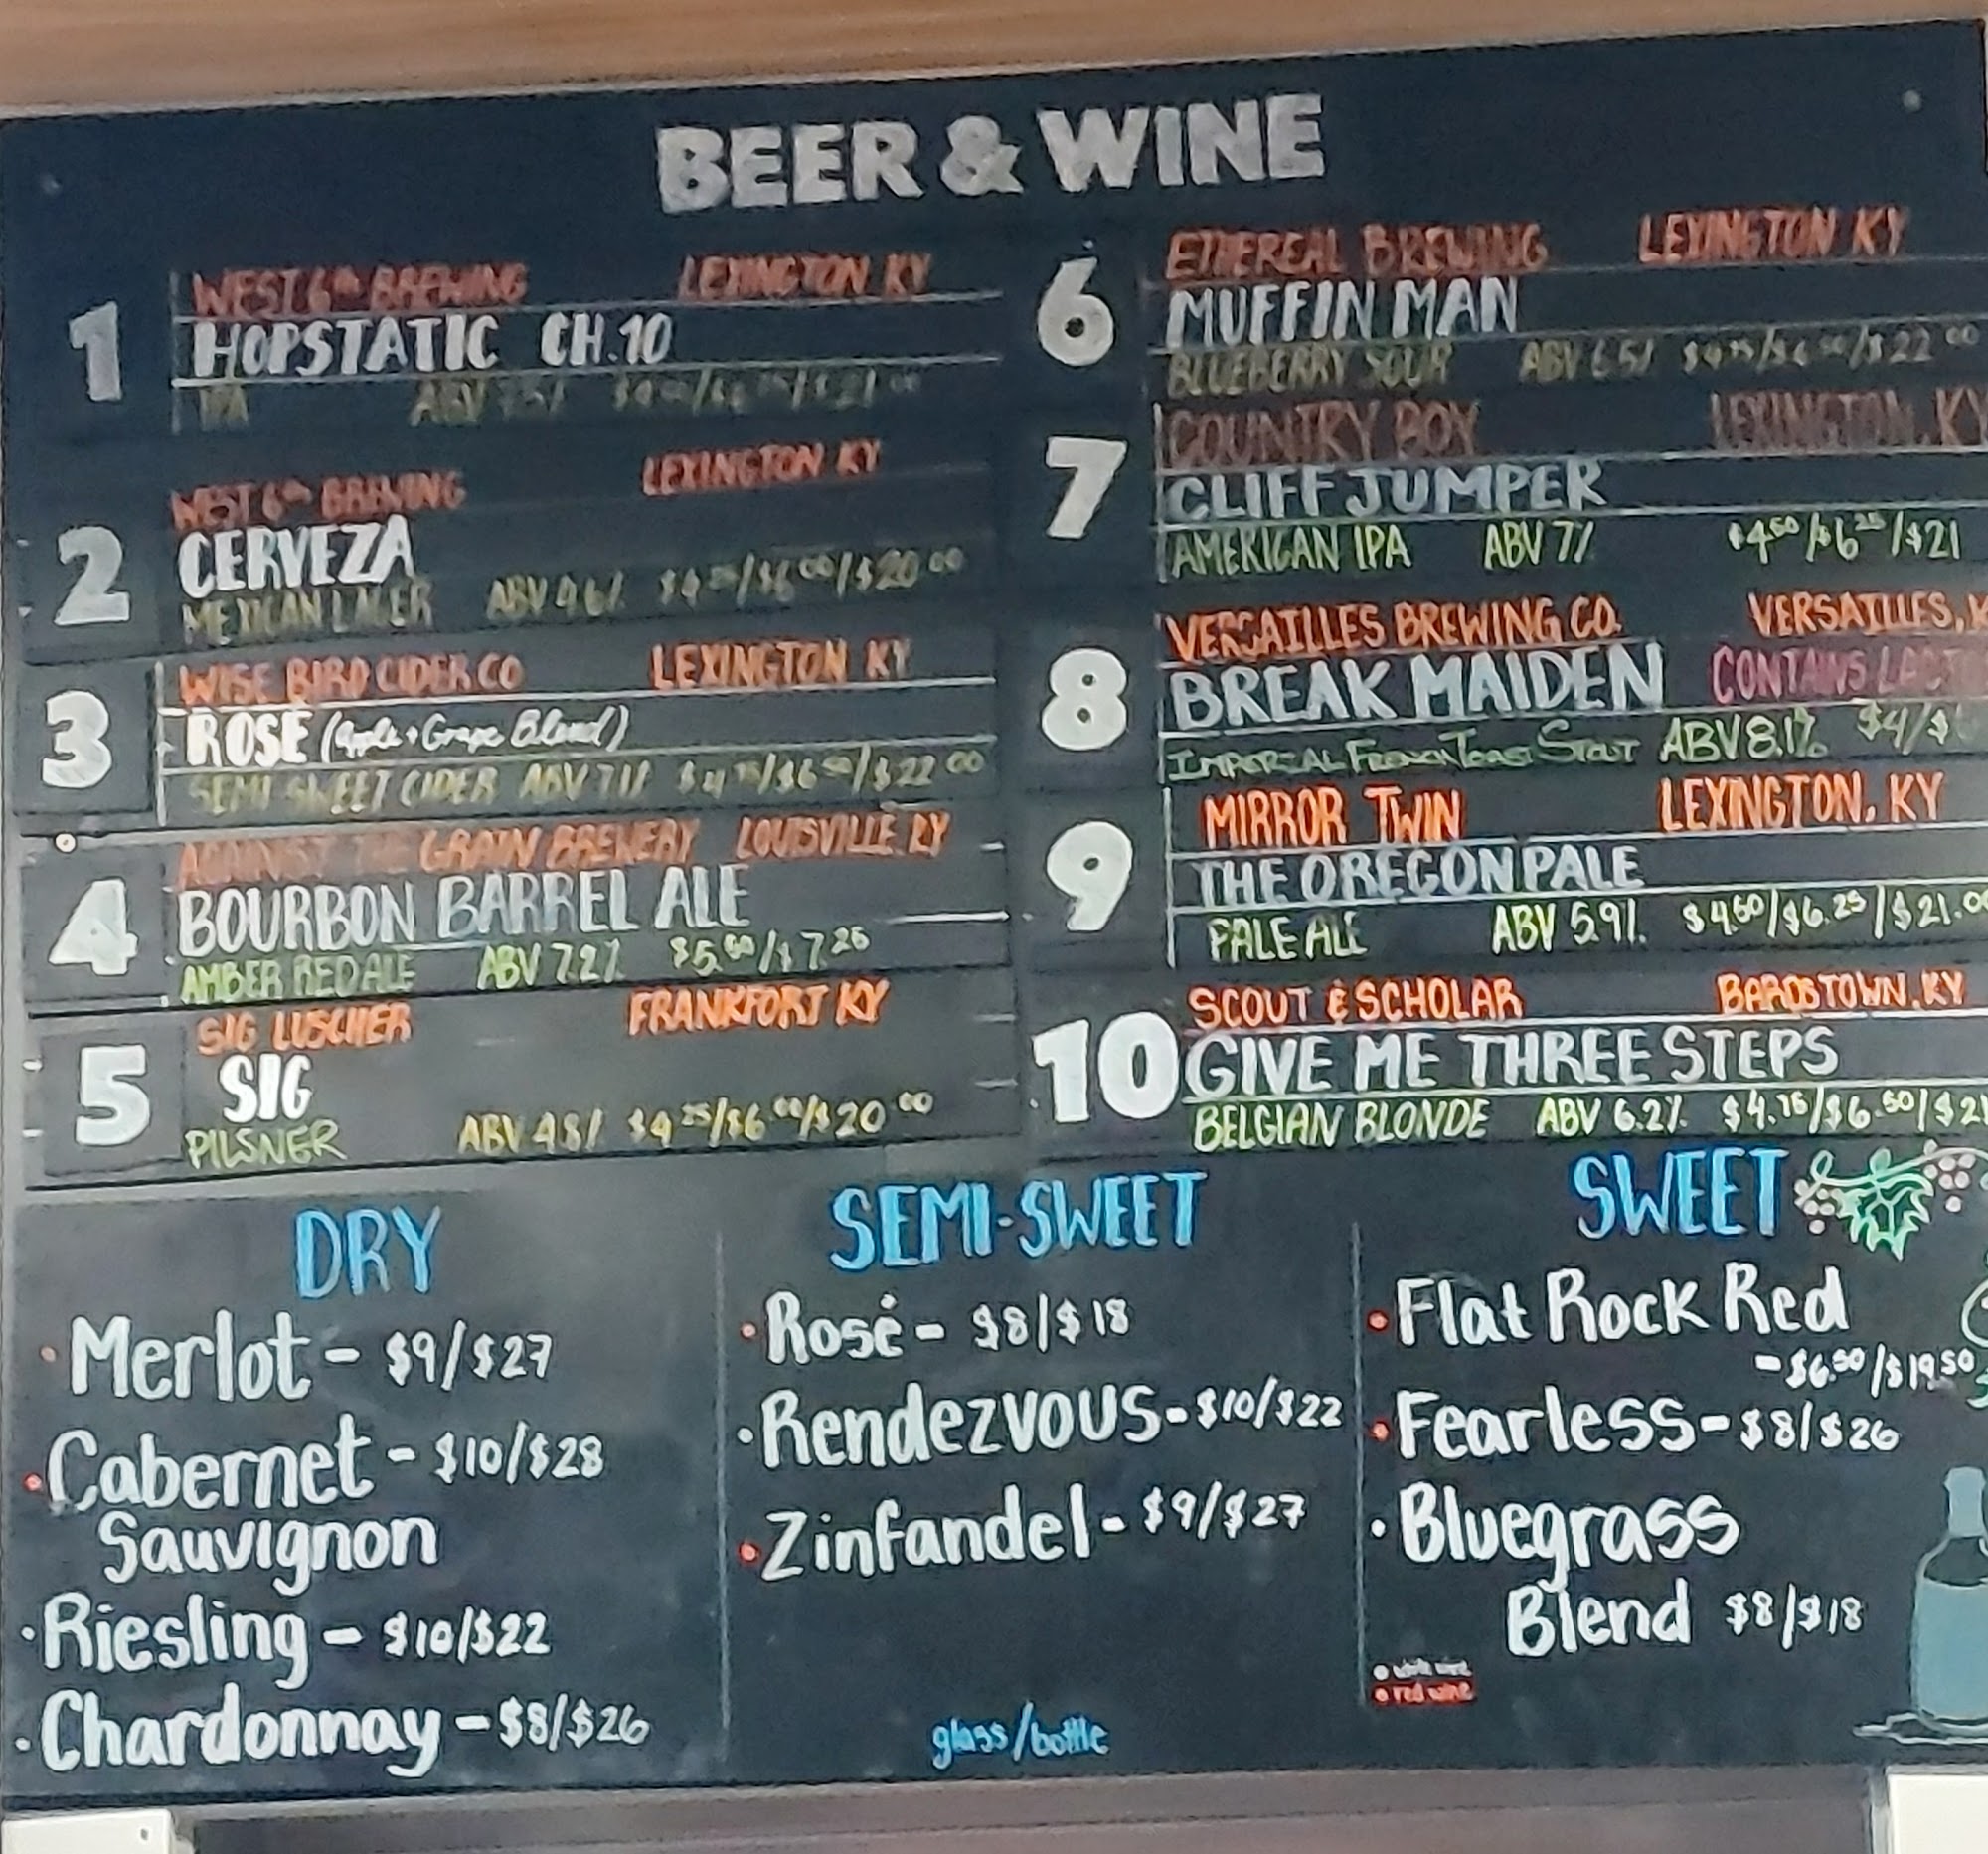 BEER & WINE
1
WEST 6th BREWING LEXINGTON KY
HOPSTATIC CH.10
IPA ABV 7.5%
2
WEST 6th BREWING LEXINGTON KY
CERVEZA
MEXICAN LAGER ABV 4.6% $4.25/$6.00/$20.00
3
WISE BIRD CIDER CO LEXINGTON KY
ROSÉ (Apple + Grape Blend)
SEMI SWEET CIDER ABV 7.1% $4.75/$6.50/$22.00
4
AGAINST THE GRAIN BREWERY LOUISVILLE, KY
BOURBON BARREL ALE
AMBER RED ALE ABV 7.2% $5.50/$7.25
5
SIG LUSCHER FRANKFORT KY
SIG
PILSNER ABV 4.8% $4.25/$6.00/$20.00
6
ETHEREAL BREWING LEXINGTON KY
MUFFIN MAN
BLUEBERRY SOUR ABV 6.5% $4.75/$6.50/$22.00
7
COUNTRY BOY LEXINGTON, KY
CLIFF JUMPER
AMERICAN IPA ABV 7% $4.50/$6.25/$21
8
VERSAILLES BREWING CO. VERSAILLES,
BREAK MAIDEN CONTAINS
IMPERIAL FRENCH TOAST STOUT ABV 8.1% $4/$
9
MIRROR TWIN LEXINGTON, KY
THE OREGON PALE
PALE ALE ABV 5.9%. $4.50/$6.25/$21.0
10
SCOUT & SCHOLAR BARDSTOWN, KY
GIVE ME THREE STEPS
BELGIAN BLONDE ABV 6.2%. $4.75/$6.50/$2
DRY
• Merlot - $9/$27
• Cabernet - $10/$28
Sauvignon
• Riesling - $10/$22
• Chardonnay - $8/$26
SEMI-SWEET
• Rosé - $8/$18
• Rendezvous - $10/$22
• Zinfandel - $9/$27
glass/bottle
SWEET
• Flat Rock Red
- $6.50/$19.50
• Fearless - $8/$26
• Bluegrass
Blend $8/$18
• white wine
• red wine